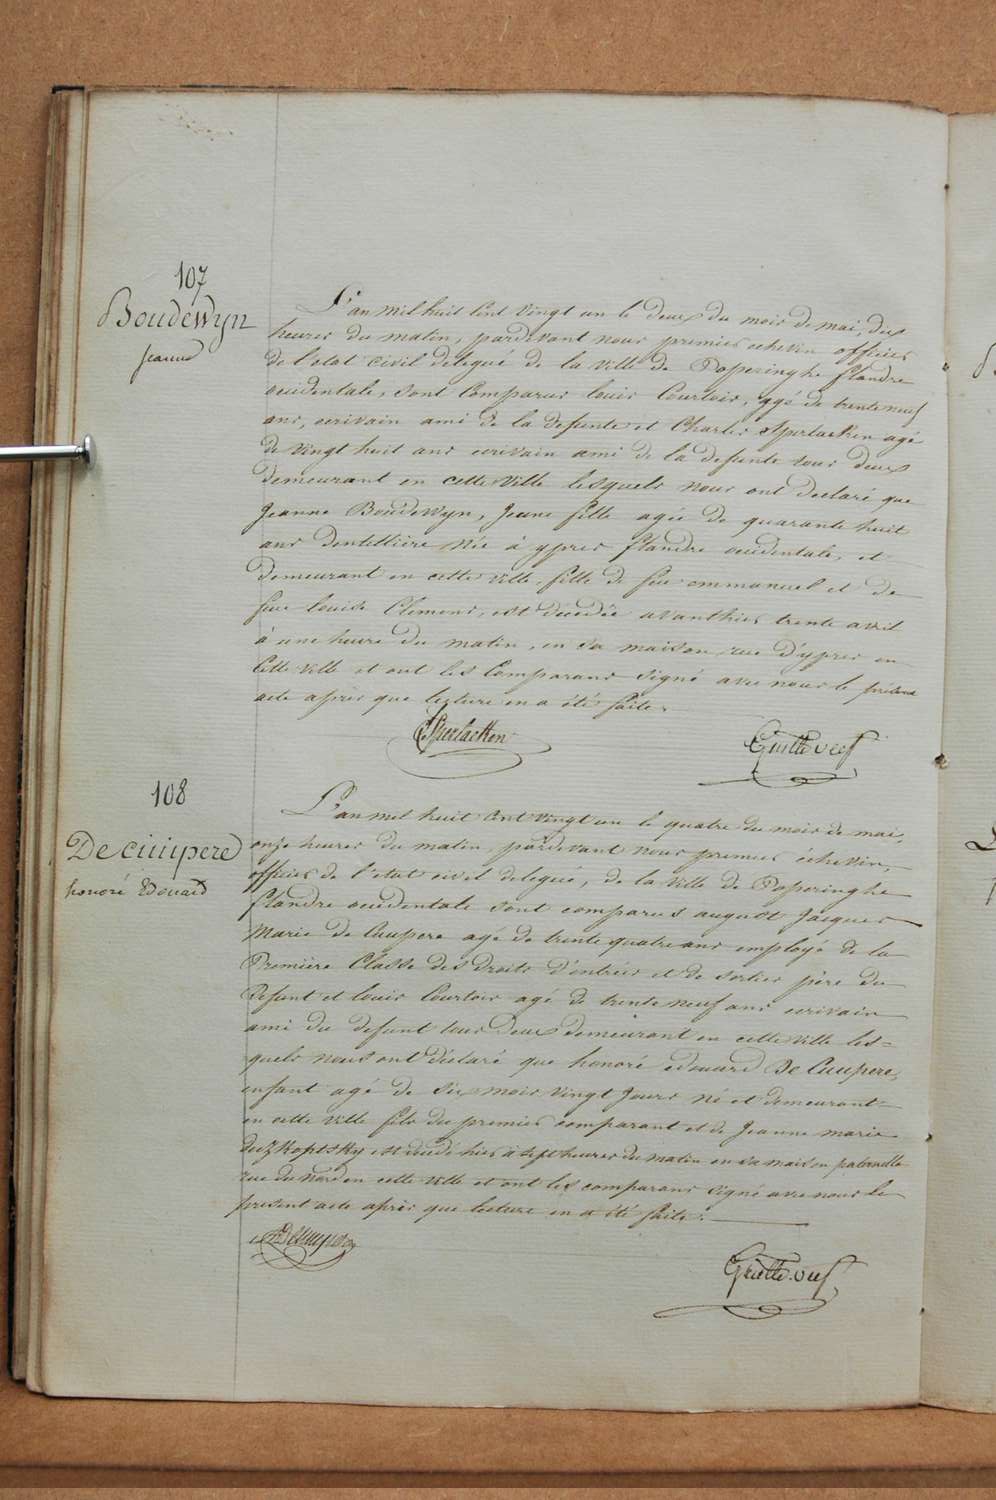 107
Boudewyn
jeanne
L'an mil huit cent vingt un le deux du mois de mai, dix
heures du matin, pardevant nous premier échevin officier
de l'etat civil delegué de la ville de Poperinghe flandre
occidentale, sont comparus louis Courtois, agé de trente neuf
ans, ecrivain ami de la defunte et Charles Sperlacken agé
de vingt huit ans ecrivain ami de la defunte tous deux
demeurant en cette ville lesquels nous ont declaré que
Jeanne Boudewyn, Jeune fille agée de quarante huit
ans dentellière née à ypres flandre occidentale, et
demeurant en cette ville, fille de feu emmanuel et de
feue louise Clement, est décédée avanthier trente avril
à une heure du matin, en sa maison rue d'ypres en
cette ville et ont les comparans signé avec nous le présent
acte après que lecture en a été faite.
Sperlacken
108
De Cuupere
honoré Edouard
L'an mil huit cent vingt un le quatre du mois de mai,
onze heures du matin, pardevant nous premier échevin,
officier de l'etat civil delegué, de la ville de Poperinghe
flandre occidentale sont comparus august Jacques
Marie de Cuupere agé de trente quatre ans employé de la
Première Classe des droits d'entrées et de sorties père du
defunt et louis Courtois agé de trente neuf ans ecrivain
ami du defunt tous deux demeurant en cette ville les=
quels nous ont déclaré que honoré edouard De Cuupere,
enfant agé de six mois vingt Jours né et demeurant
en cette ville fils du premier comparant et de Jeanne marie
est décédé hier à sept heures du matin en sa maison paternelle
rue du nord en cette ville et ont les comparans signé avec nous le
present acte après que lecture en a été faite.